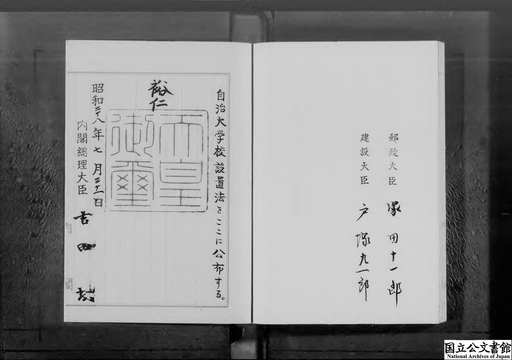 郵政大臣 塚田十一郎
建設大臣 戸塚九一郎
自治大学校設置法をここに公布する。
裕仁
天皇
御璽
昭和二十八年七月三十一日
内閣総理大臣 吉田茂
国立公文書館
National Archives of Japan